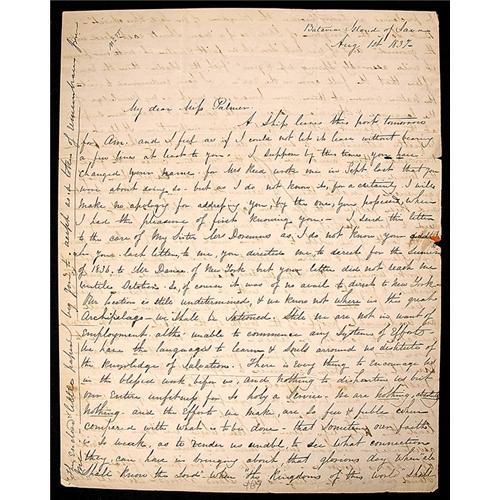 Batavia Island of Java
Aug. 1st 1837
My dear Miss Palmer.
A Ship leaves this port tomorrow
for Am. and I feel as if I could not let it leave without bearing
a few lines at least to you. I suppose by this time you have
changed your name. for Mrs Reed wrote me in Sept last that you
were about doing so. but as I do not know it, for a certainty I will
make no apology for addressing you by the one, you possessed, when
I had the pleasure of first knowing you. I send this letter
to the care of My Sister Mrs Doremus as, I do not know your address
In your last letter, to me, you directed me to direct for the
of 1836, to Mr Dance of New York but your letter did not reach me
untill October. So, of course it was of no avail to direct to New York.
Our location is still undetermined, & we know not where in this great
Archipelago we Shall be Stationed. Still we are not in want of
Employment. altho. unable to commence any Systems of Effort.
We have the languages to learn & Souls around us destitute
of the Knowledge of Salvation. There is every thing to encourage us
in the blessed work before us, and nothing to dishearten us but
our Entire unfitness for So holy a Service. We are nothing,
nothing and the Efforts we make, are So few & feeble even
compared with what is to be done - that Sometimes our faith
is So weak, as to render us unable to see what connection
they can have in bringing about that glorious day when "all
Shall Know the Lord" when "the Kingdoms of this World Shall
409